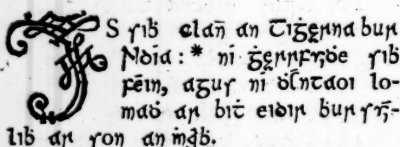 IS siḃ clañ an Tiġerna bur
Ndia : * ní ġerrfōḋe siḃ
féin, agus ní ḋl̃ntaoi lo-
maḋ ar biṫ eidir ḃur sr̃-
liḃ ar son an ṁar̃ḃ.